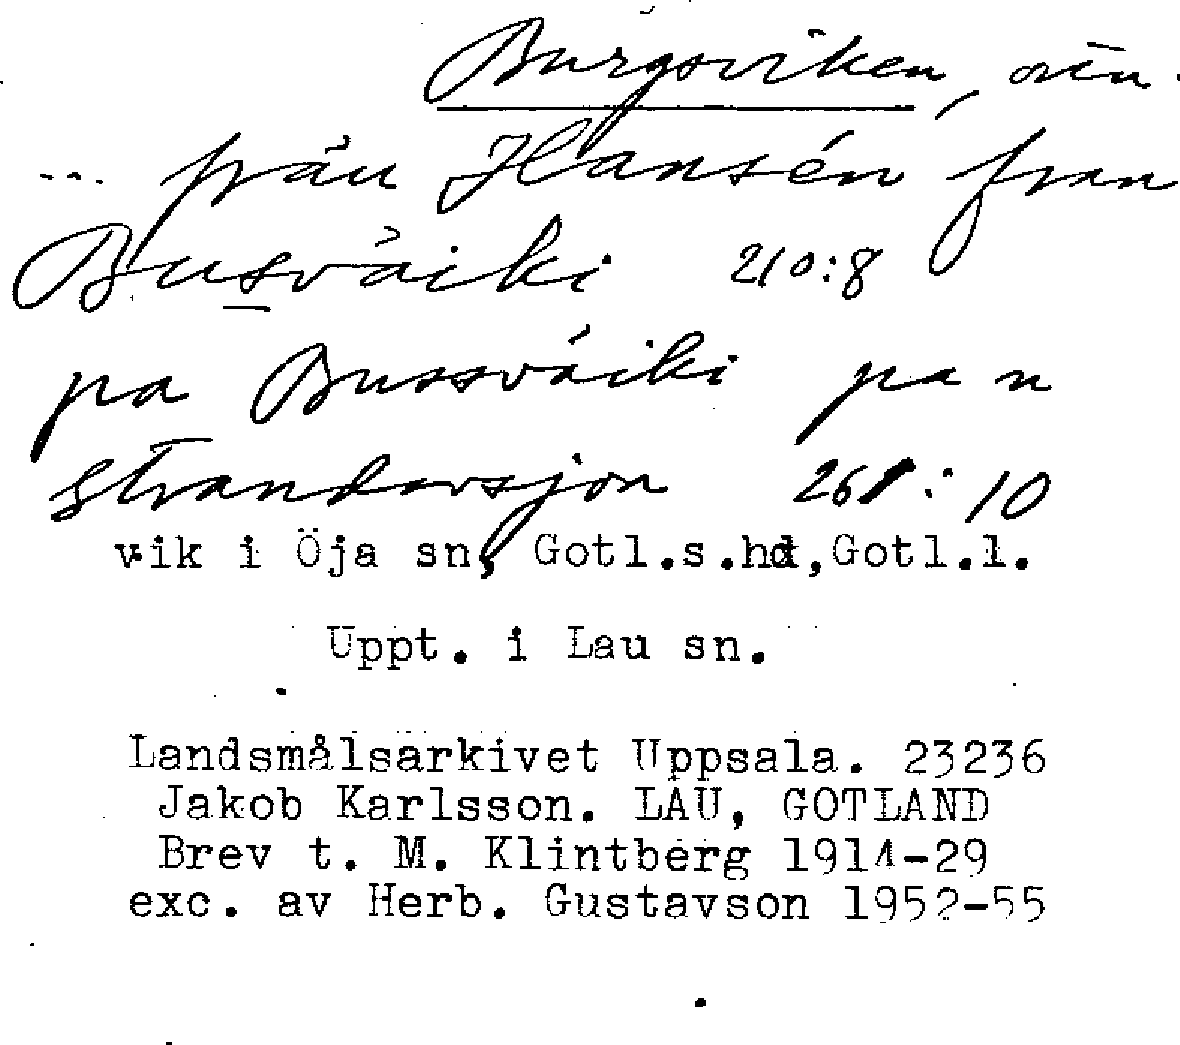 Burgsviken, ortn.
... från Hansén fran
Busvàiki 210:8
pa Bussváiki pa n
strandarsjon 261:10
vik i Öja sn, Gotl.s.hd,Gotl.l.
Uppt. i Lau sn.
Landsmålsarkivet Uppsala. 23236
Jakob Karlsson. LAU, GOTLAND
Brev t. M. Klintberg 1914-29
exc. av Herb. Gustavson 1952-55